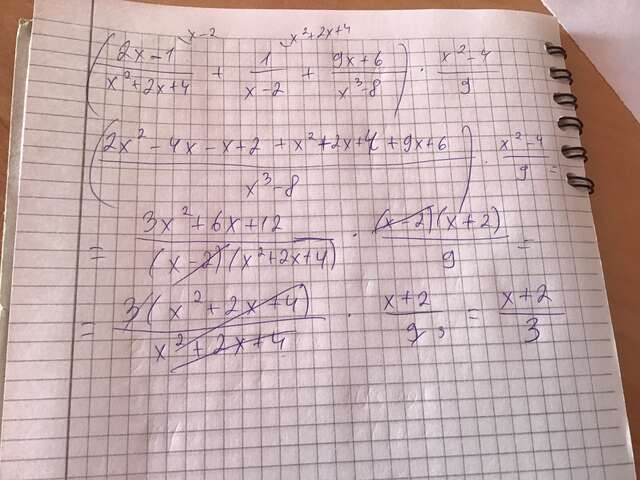 x-2 x²+2x+4
(2x-1 / x²+2x+4 + 1 / x-2 + 9x+6 / x³-8) · x²-4 / 9
(2x²-4x-x+2+x²+2x+4+9x+6 / x³-8) · x²-4 / 9 =
= 3x²+6x+12 / (x-2)(x²+2x+4) · (x-2)(x+2) / 9 =
= 3(x²+2x+4) / x²+2x+4 · x+2 / 9 3 = x+2 / 3